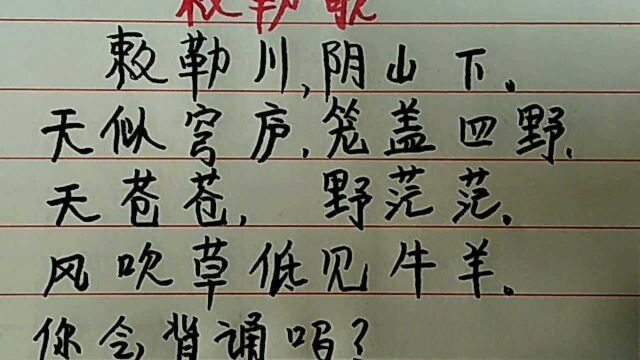 敕勒歌
敕勒川,阴山下。
天似穹庐,笼盖四野,
天苍苍,野茫茫,
风吹草低见牛羊。
你会背诵吗?